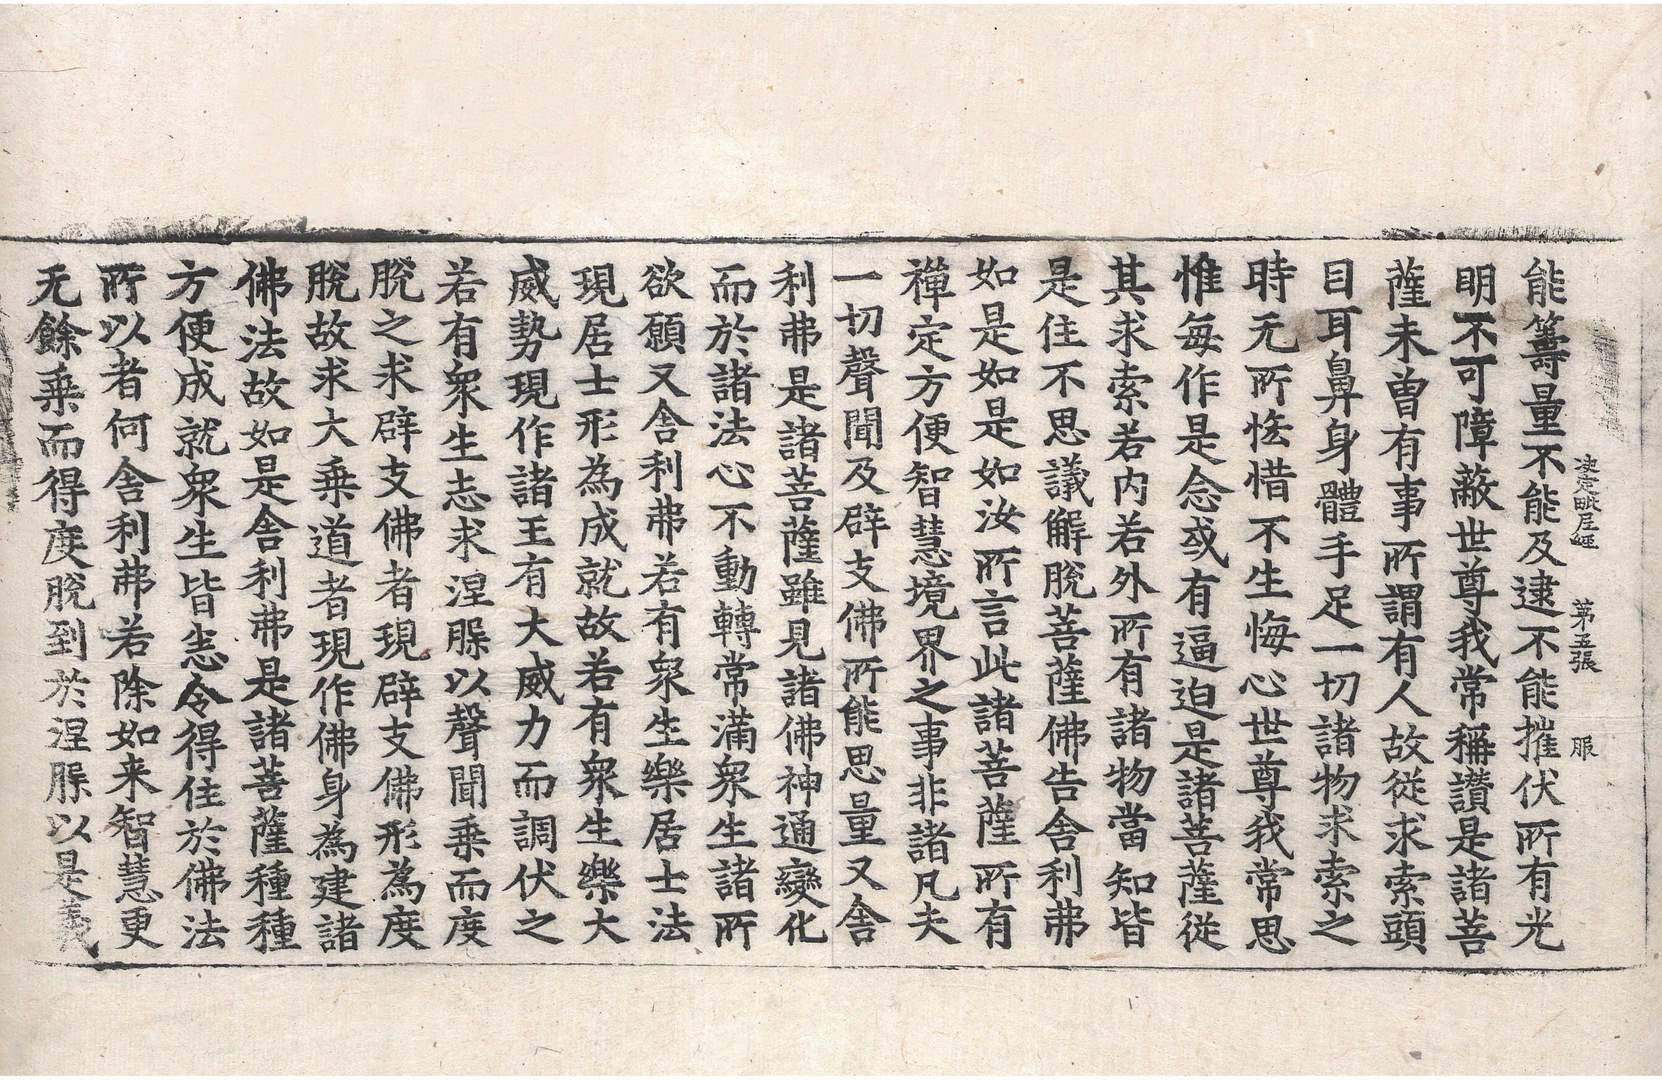 决定毗尼經 第五張 服
能籌量不能及逮不能摧伏所有光
明不可障蔽世尊我常稱讃是諸菩
薩未曾有事所謂有人故從求索頭
目耳鼻身體手足一切諸物求索之
時无所恡惜不生悔心世尊我常思
惟每作是念或有逼迫是諸菩薩從
其求索若内若外所有諸物當知皆
是住不思議解脫菩薩佛告舍利弗
如是如是如汝所言此諸菩薩所有
禪定方便智慧境界之事非諸凡夫
一切聲聞及辟支佛所能思量又舍
利弗是諸菩薩雖見諸佛神通變化
而於諸法心不動轉常滿衆生諸所
欲願又舍利弗若有衆生樂居士法
現居士形為成就故若有衆生樂大
威勢現作諸王有大威力而調伏之
若有衆生志求涅槃以聲聞乗而度
脫之求辟支佛者現辟支佛形為度
脫故求大乗道者現作佛身為建諸
佛法故如是舍利弗是諸菩薩種種
方便成就衆生皆悉令得住於佛法
所以者何舍利弗若除如来智慧更
无餘乗而得度脫到於涅槃以是義